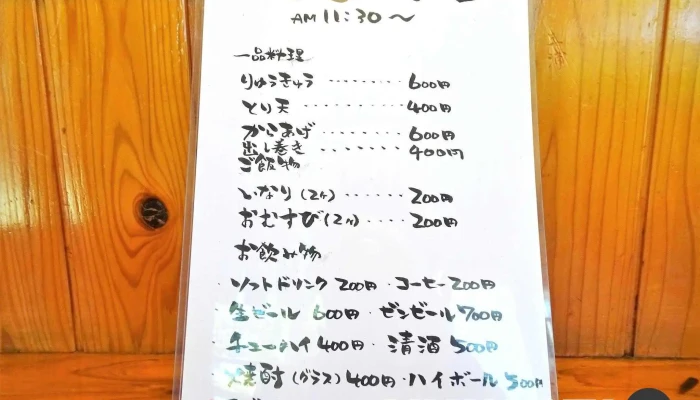 AM 11:30〜
一品料理
りゅうきゅう ········ 600円
とり天 ·········· 400円
からあげ ········ 600円
出し巻き ········ 400円
ご飯物
いなり(2ヶ) ······ 200円
おむすび(2ヶ) ···· 200円
お飲み物
・ソフトドリンク 200円・コーヒー 200円
・生ビール 600円・ビンビール 700円
・チューハイ 400円・清酒 500円
・焼酎(グラス) 400円・ハイボール 500円